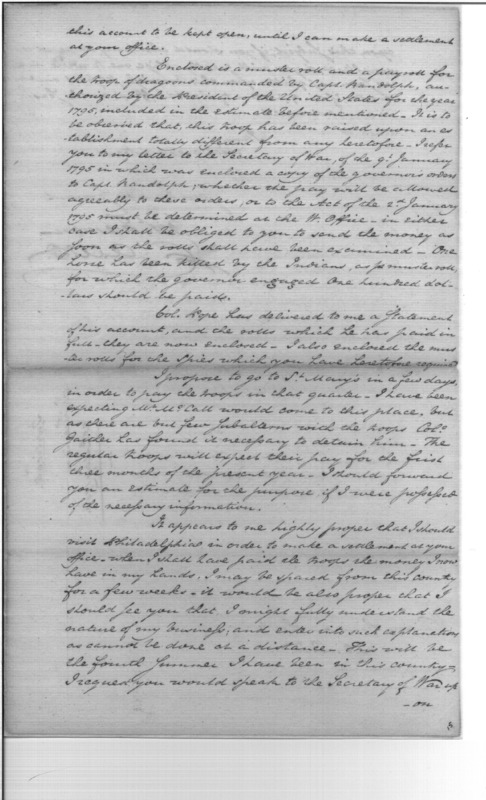 this account to be kept open, until I can make a settlement
at your office.
Enclosed is a muster roll and a pay roll for
the troop of dragoons commanded by Capt. Randolph, au-
thorized by the President of the United States for the year
1795, included in the estimate before mentioned - It is to
be observed that, this troop has been raised upon an es
tablishment totally different from any heretofore - I refer
you to my letter to the Secretary of War, of the 9th January
1795 in which was enclosed a copy of the governor's orders
to Capt. Randolph, whether the pay will be allowed
agreeably to these orders, or to the Act of the 2nd January
1795 must be determined at the W. Office - in either
case I shall be obliged to you to send the money as
soon as the rolls shall have been examined - One
horse has been killed by the Indians, as p muster roll,
for which the governor engaged One hundred dol-
lars should be paid.
Col. Pope has delivered to me a Statement
of his account, and the rolls which he has paid in
full - they are now enclosed - I also enclosed the mus
ter rolls for the Spies which you have heretofore required
I propose to go to St. Mary's in a few days,
in order to pay the troops in that quarter - I have been
expecting Mr. McCall would come to this place, but
as there are but few Subalterns with the troops Colo.
Gaither has found it necessary to detain him - The
regular troops will expect their pay for the first
three months of the present year - I should forward
you an estimate for the purpose if I were possessed
of the necessary information.
It appears to me highly proper that I should
visit Philadelphia in order to make a settlement at your
office - when I shall have paid the troops the money I now
have in my hands, I may be spared from this country
for a few weeks - it would be also proper that I
should see you that I might fully understand the
nature of my business, and enter into such explanations
as cannot be done at a distance - This will be
the fourth Summer I have been in this country -
I request you would speak to the Secretary of War up
- on